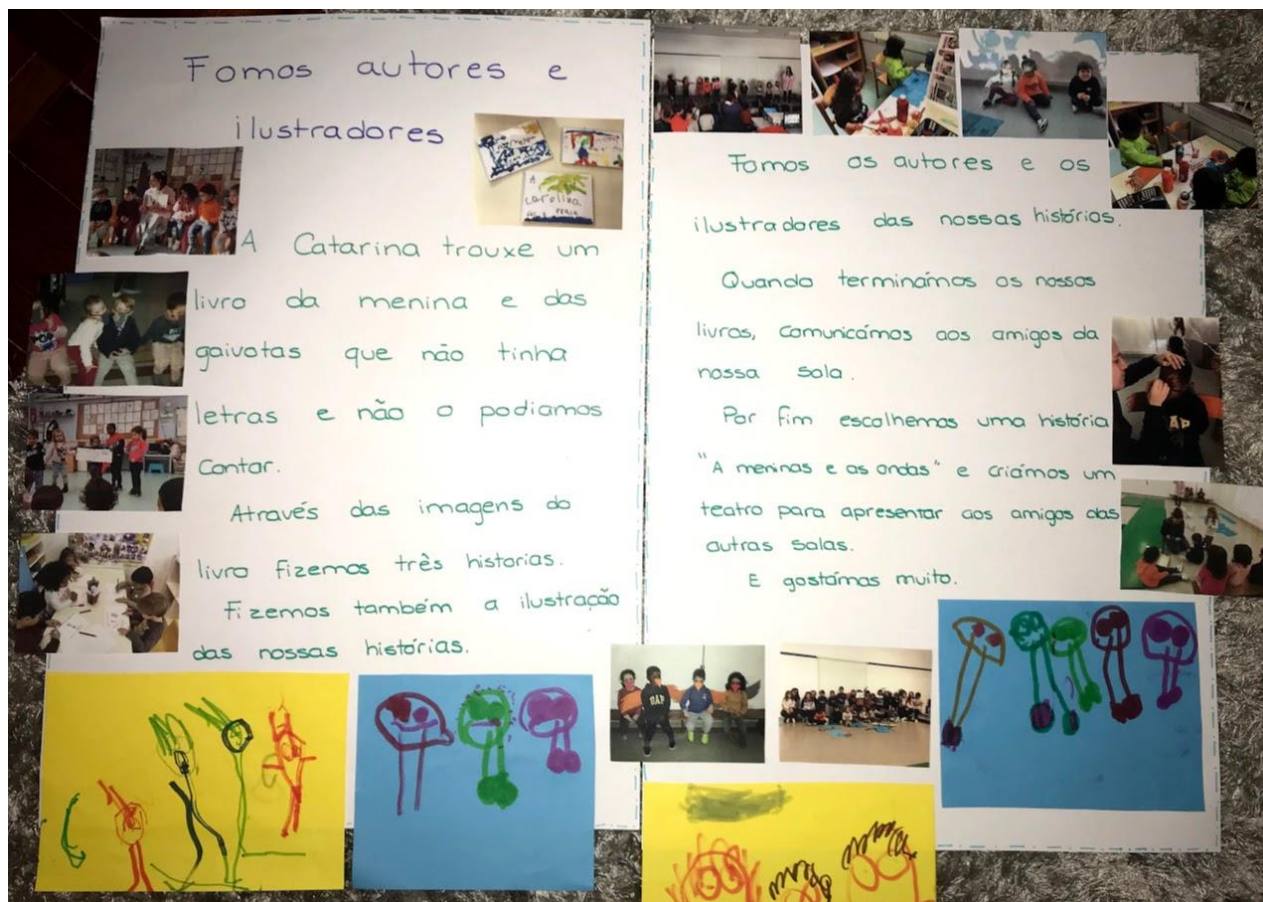 Fomos autores e
ilustradores
A
carolina
A Catarina trouxe um
livro da menina e das
gaivotas que não tinha
letras e não o podiamos
Contar.
Através das imagens do
livro fizemos três historias.
Fizemos também a ilustração
das nossas histórias.
Fomos os autores e os
ilustradores das nossas histórias.
Quando terminámos os nossos
livros, comunicámos aos amigos da
nossa sala.
Por fim escolhemos uma história
"A meninas e as ondas" e criámos um
teatro para apresentar aos amigos das
outras salas.
E gostámos muito.
GAP